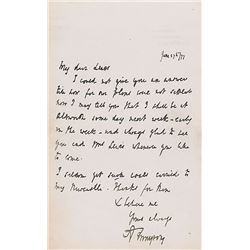 June 27/77
My dear Lewes
I could not give you an answer
till now for our plans were not settled
now I may tell you that I shall be at
Aldworth some day next week – early
in the week – and always glad to see
you and Mrs Lewes whenever you like
to come.
I seldom get such coals carried to
my Newcastle. Thanks for them
& believe me
Yours always
A Tennyson